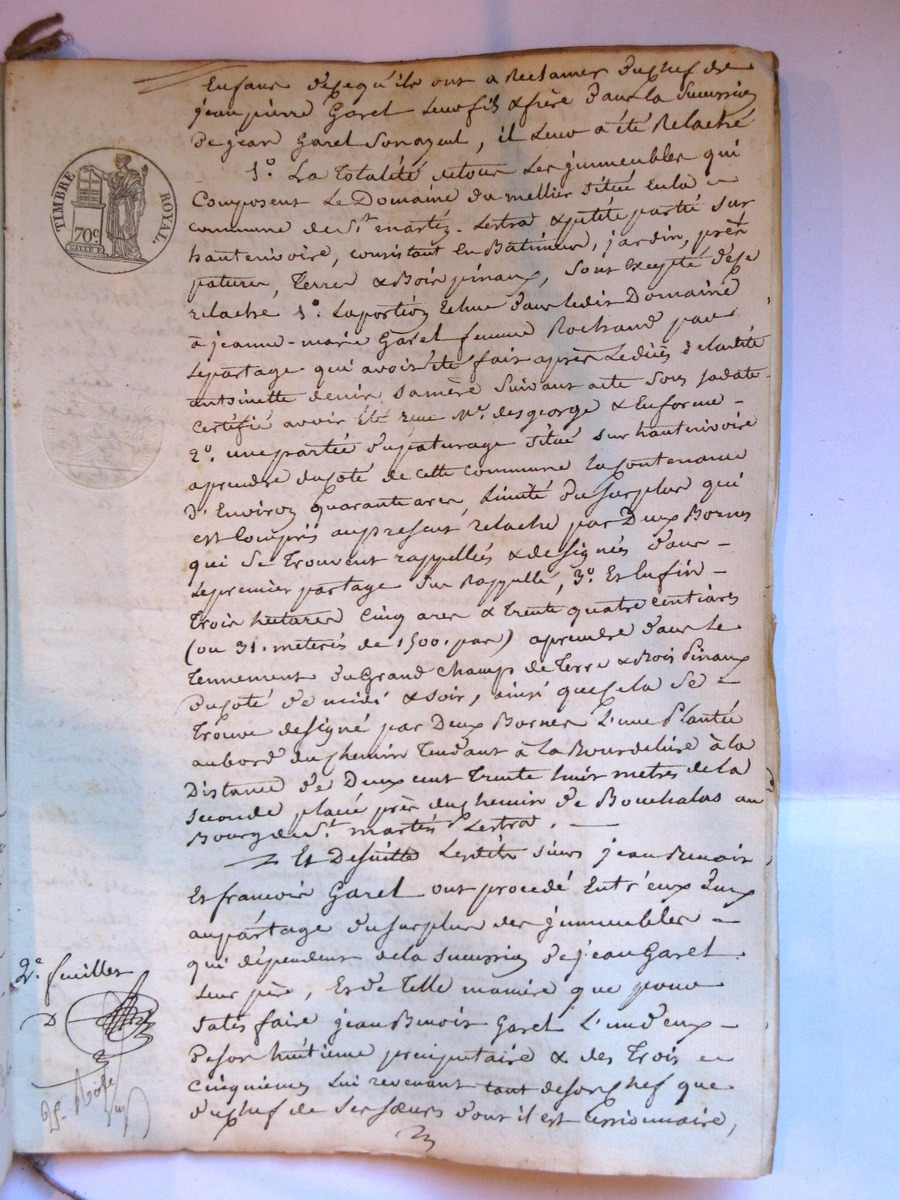 Enfans de ce qu'ils ont a Reclamer du chef de
jean pierre Garel leur fils & frère dans la Succession
de jean Garel son ayeul, il leur a été Relaché
1º. La Totalité de tous Les jmmeubles qui
Composent Le Domaine du mellier situé en la
commune de St. martin-Lestra & petite partie sur
hauterivoire, consistant en Batimens, jardin, près
patures, Terres & Bois pinaux, sous Excepté de ce
relache 1º. La portion Echue dans ledit Domaine
à jeanne-marie Garel femme Rochand par
Le partage qui avoit été fait après Le décès de ladite
antoinette denis sa mère suivant acte sous sa date
certifié avoir Eté reçu Me. desgeorge & En forme
2º. une partie du paturage situé sur hauterivoire
a prendre du coté de cette commune la Contenance
d'Environ quarante ares, Limité du surplus qui
est Compris au present relache par Deux Bornes
qui se Trouvent rappellées & designés dans
Le premier partage sus Rappellé, 3º. Et Enfin
Trois hectares Cinq ares & trente quatre centiares
(ou 31. meterés de 1500. pas) a prendre dans Le
Tennement du Grand Champ de Terre & Bois Pinaux
du coté de midi & soir, ainsi que cela se
Trouve designé par Deux Bornes L'une Plantée
au bord du chemin Tendant à La Bourdelire à la
Distance de Deux cent Trente huit metres de la
seconde placée près du chemin de Bouchalas au
Bourg de St. martin Lestra.
Et De suitte Lesdits sieurs jean Benoit
Et francois Garel ont procedé Entr'eux deux
au partage du surplus des jmmeubles
qui dépendent de la Succession de jean Garel
Leur père, Et de Telle manière que pour
satisfaire jean Benoit Garel L'un d'eux
De son huitième preciputaire & des Trois
cinquiemes lui revenant tant de son chef que
du chef de ses sœurs dont il est Cessionnaire,
TIMBRE ROYAL.
70c
2e. feuillet